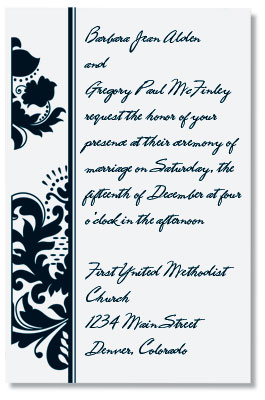 Barbara Jean Alden
and
Gregory Paul McFinley
request the honor of your
presence at their ceremony of
marriage on Saturday, the
fifteenth of December at four
o'clock in the afternoon
First United Methodist
Church
1234 Main Street
Denver, Colorado